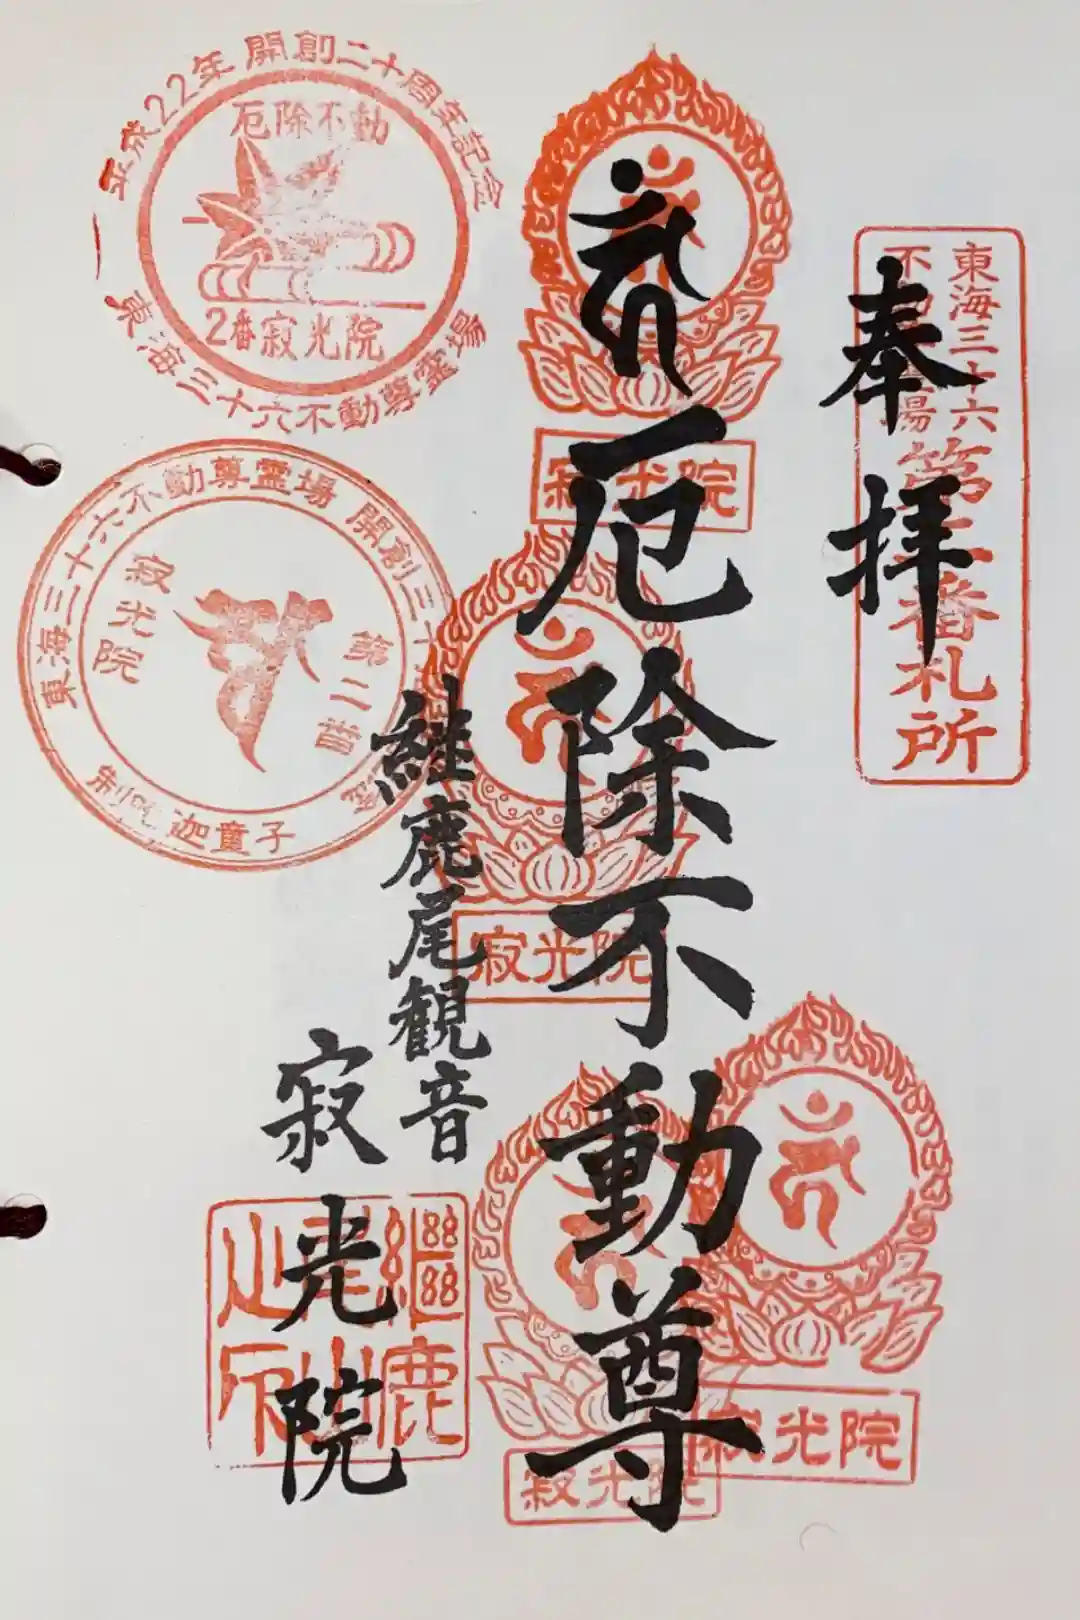 奉拝
厄除不動尊
継鹿尾観音
寂光院
東海三十六
不動尊霊場
第二番札所
平成22年開創二十周年記念
厄除不動
2番寂光院
東海三十六不動尊霊場
東海三十六不動尊霊場 開創三十
寂光院
第二番
迦童子
寂光院
寂光院
寂光院
寂光院
継鹿